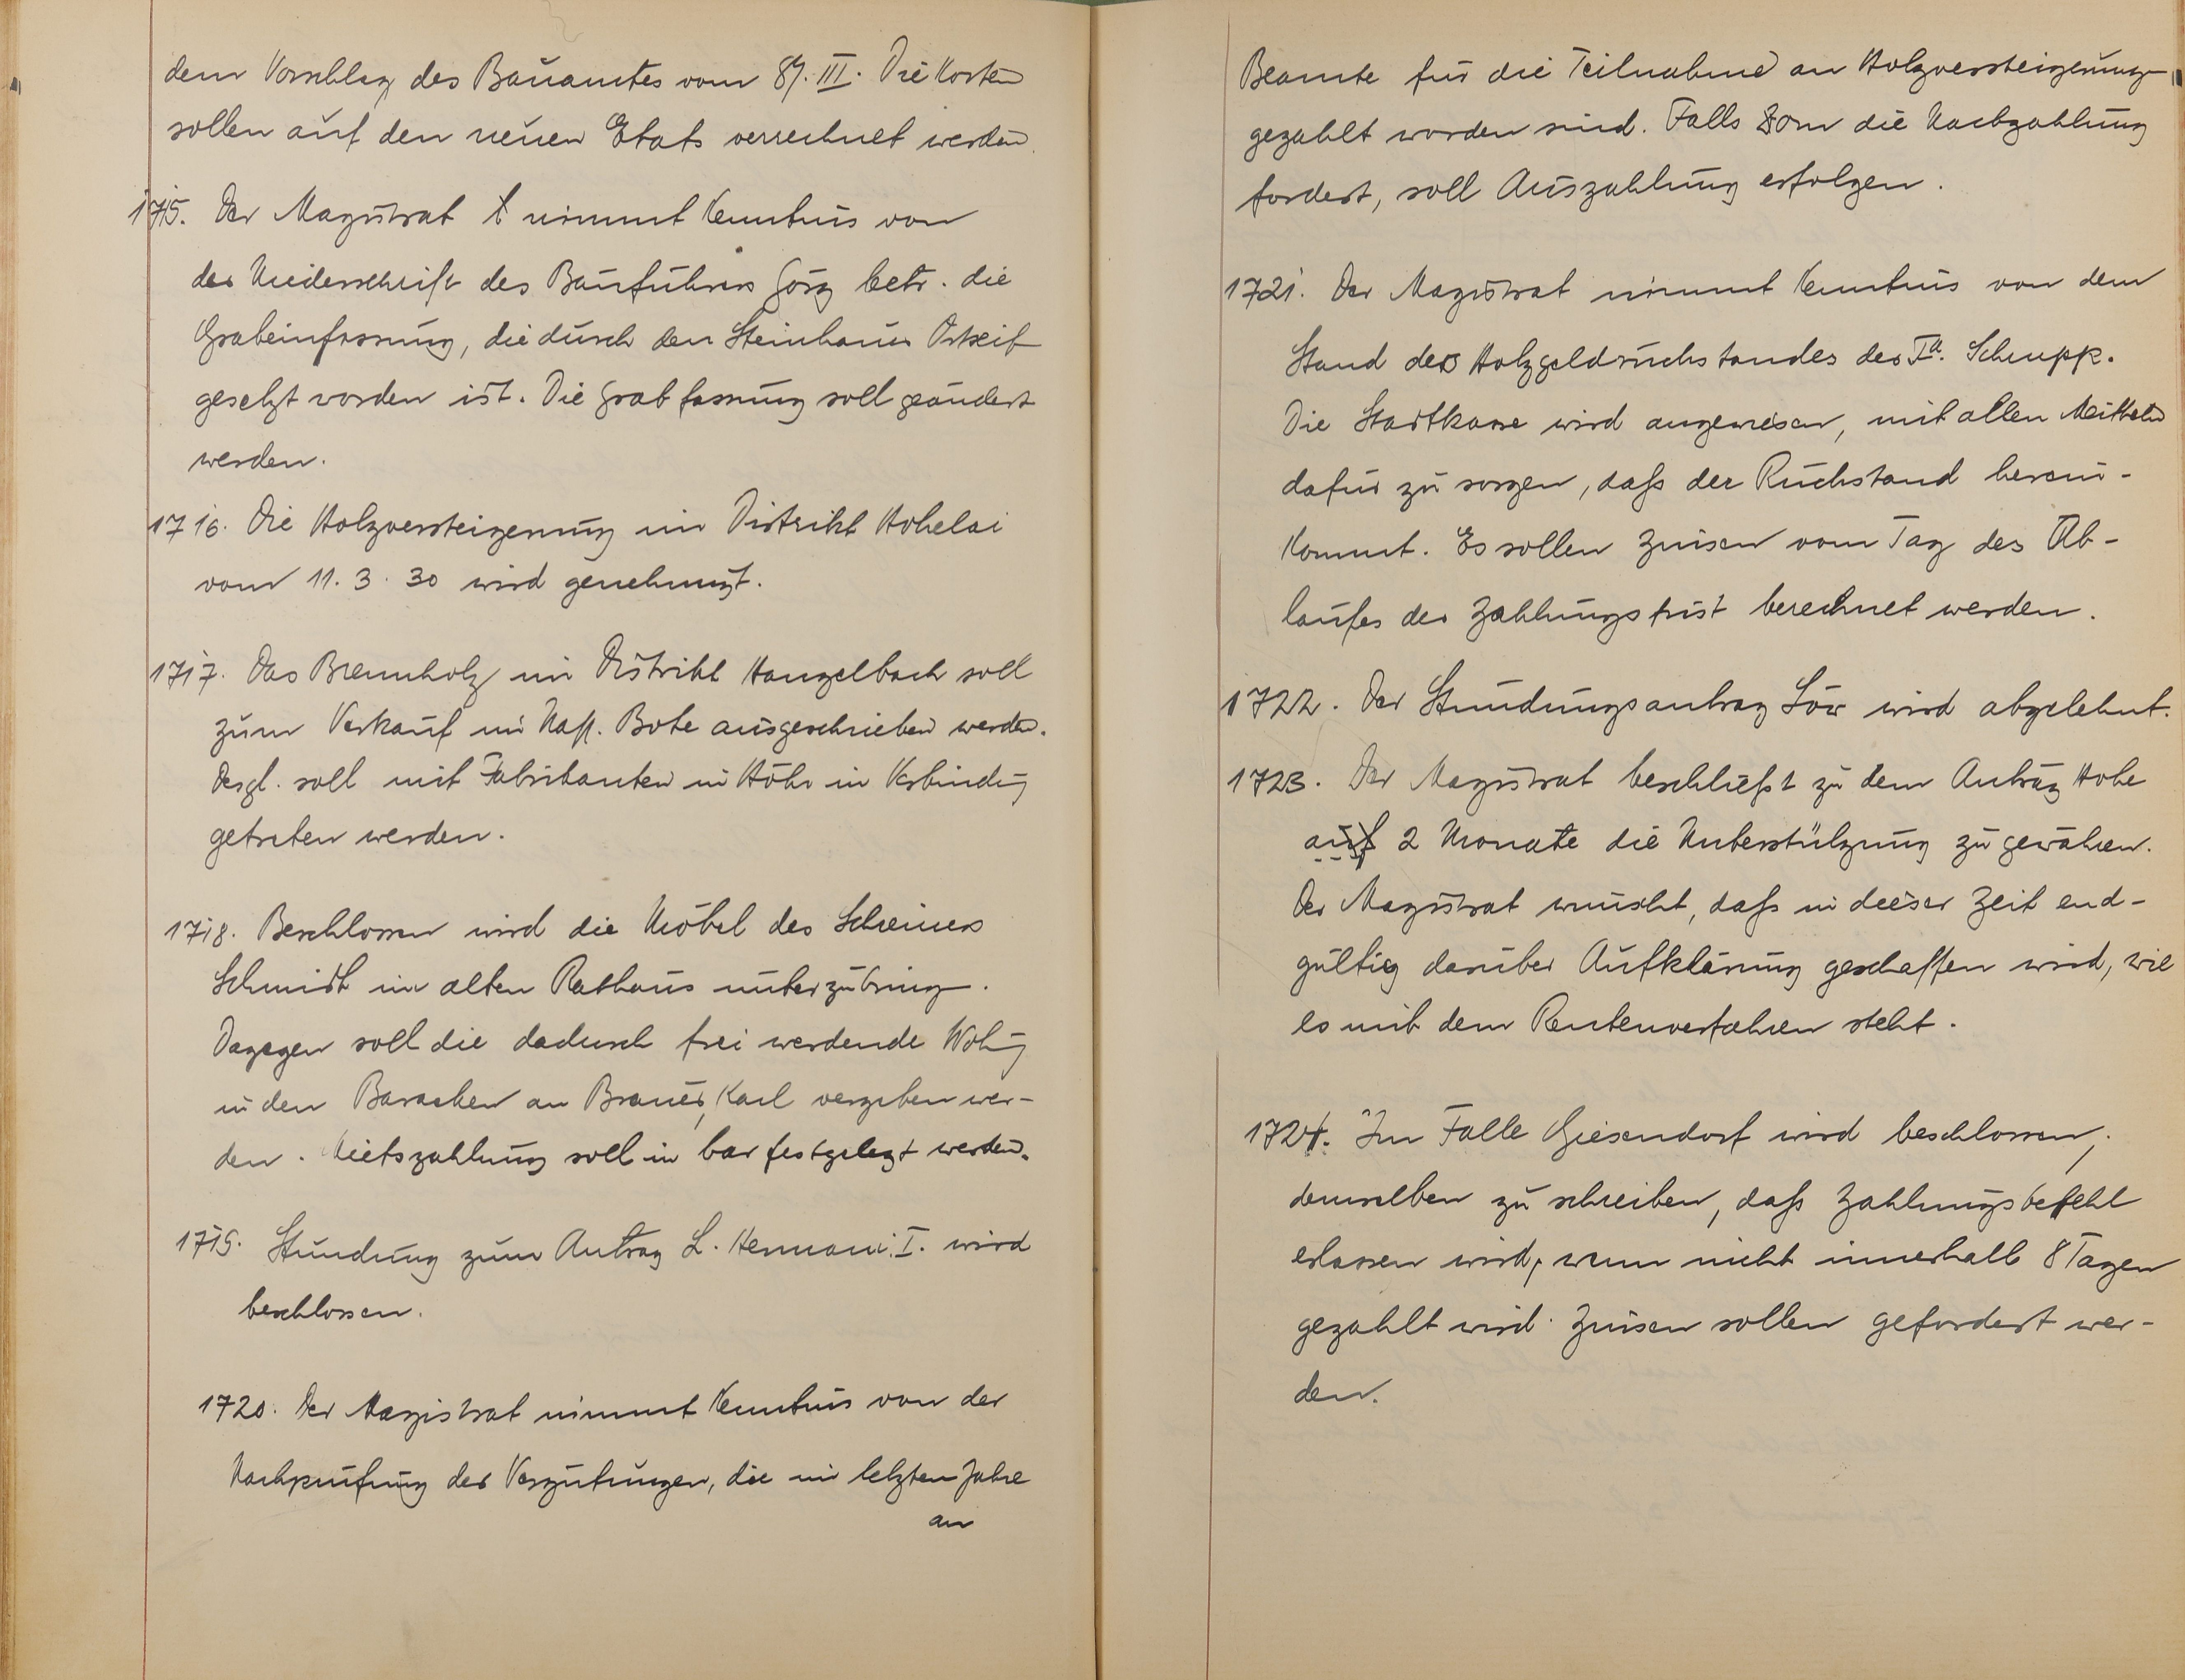 dem Vorschlag des Bauamtes vom 8/. III. Die Kosten
sollen auf den neuen Etats verrechnet werden.
1715. Der Magistrat nimmt Kenntnis von
der Niederschrift des Bauführers Görg betr. die
Grabeinfassung, die durch den Steinhauer Ortseif
gesetzt worden ist. Die Grabfassung soll geändert
werden.
1716. Die Holzversteigerung im Distrikt Hohelai
vom 11. 3. 30 wird genehmigt.
1717. Das Brennholz im Distrikt Hanzelbach soll
zum Verkauf im Nass. Bote ausgeschrieben werden.
Desgl. soll mit Fabrikanten in Höhr in Verbindg
getreten werden.
1718. Beschlossen wird die Möbel des Schreiners
Schmidt im alten Rathaus unterzubring.
Dagegen soll die dadurch frei werdende Wohg
in den Baracken an Brauer, Karl vergeben wer-
den. Mietszahlung soll in bar festgelegt werden.
1719. Stundung zum Antrag L. Hermani. I. wird
beschlossen.
1720. Der Magistrat nimmt Kenntnis von der
Nachprüfung der Vergütungen, die im letzten Jahre
an
Beamte für die Teilnahme an Holzversteigerung
gezahlt worden sind. Falls Dom die Nachzahlung
fordert, soll Auszahlung erfolgen.
1721. Der Magistrat nimmt Kenntnis von dem
Stand des Holzgeldrückstandes der Fa. Schupp.
Die Stadtkasse wird angewiesen, mit allen Mitteln
dafür zu sorgen, daß der Rückstand herein-
kommt. Es sollen Zinsen vom Tag des Ab-
laufes der Zahlungsfrist berechnet werden.
1722. Der Stundungsantrag Löw wird abgelehnt.
1723. Der Magistrat beschließt zu dem Antrag Hohe
auf 2 Monate die Unterstützung zu gewähren.
Der Magistrat wünscht, daß in dieser Zeit end-
gültig darüber Aufklärung geschaffen wird, wie
es mit dem Rentenverfahren steht.
1724. Im Falle Giesendorf wird beschlossen,
demselben zu schreiben, daß Zahlungsbefehl
erlassen wird, wenn nicht innerhalb 8 Tagen
gezahlt wird. Zinsen sollen gefordert wer-
den.